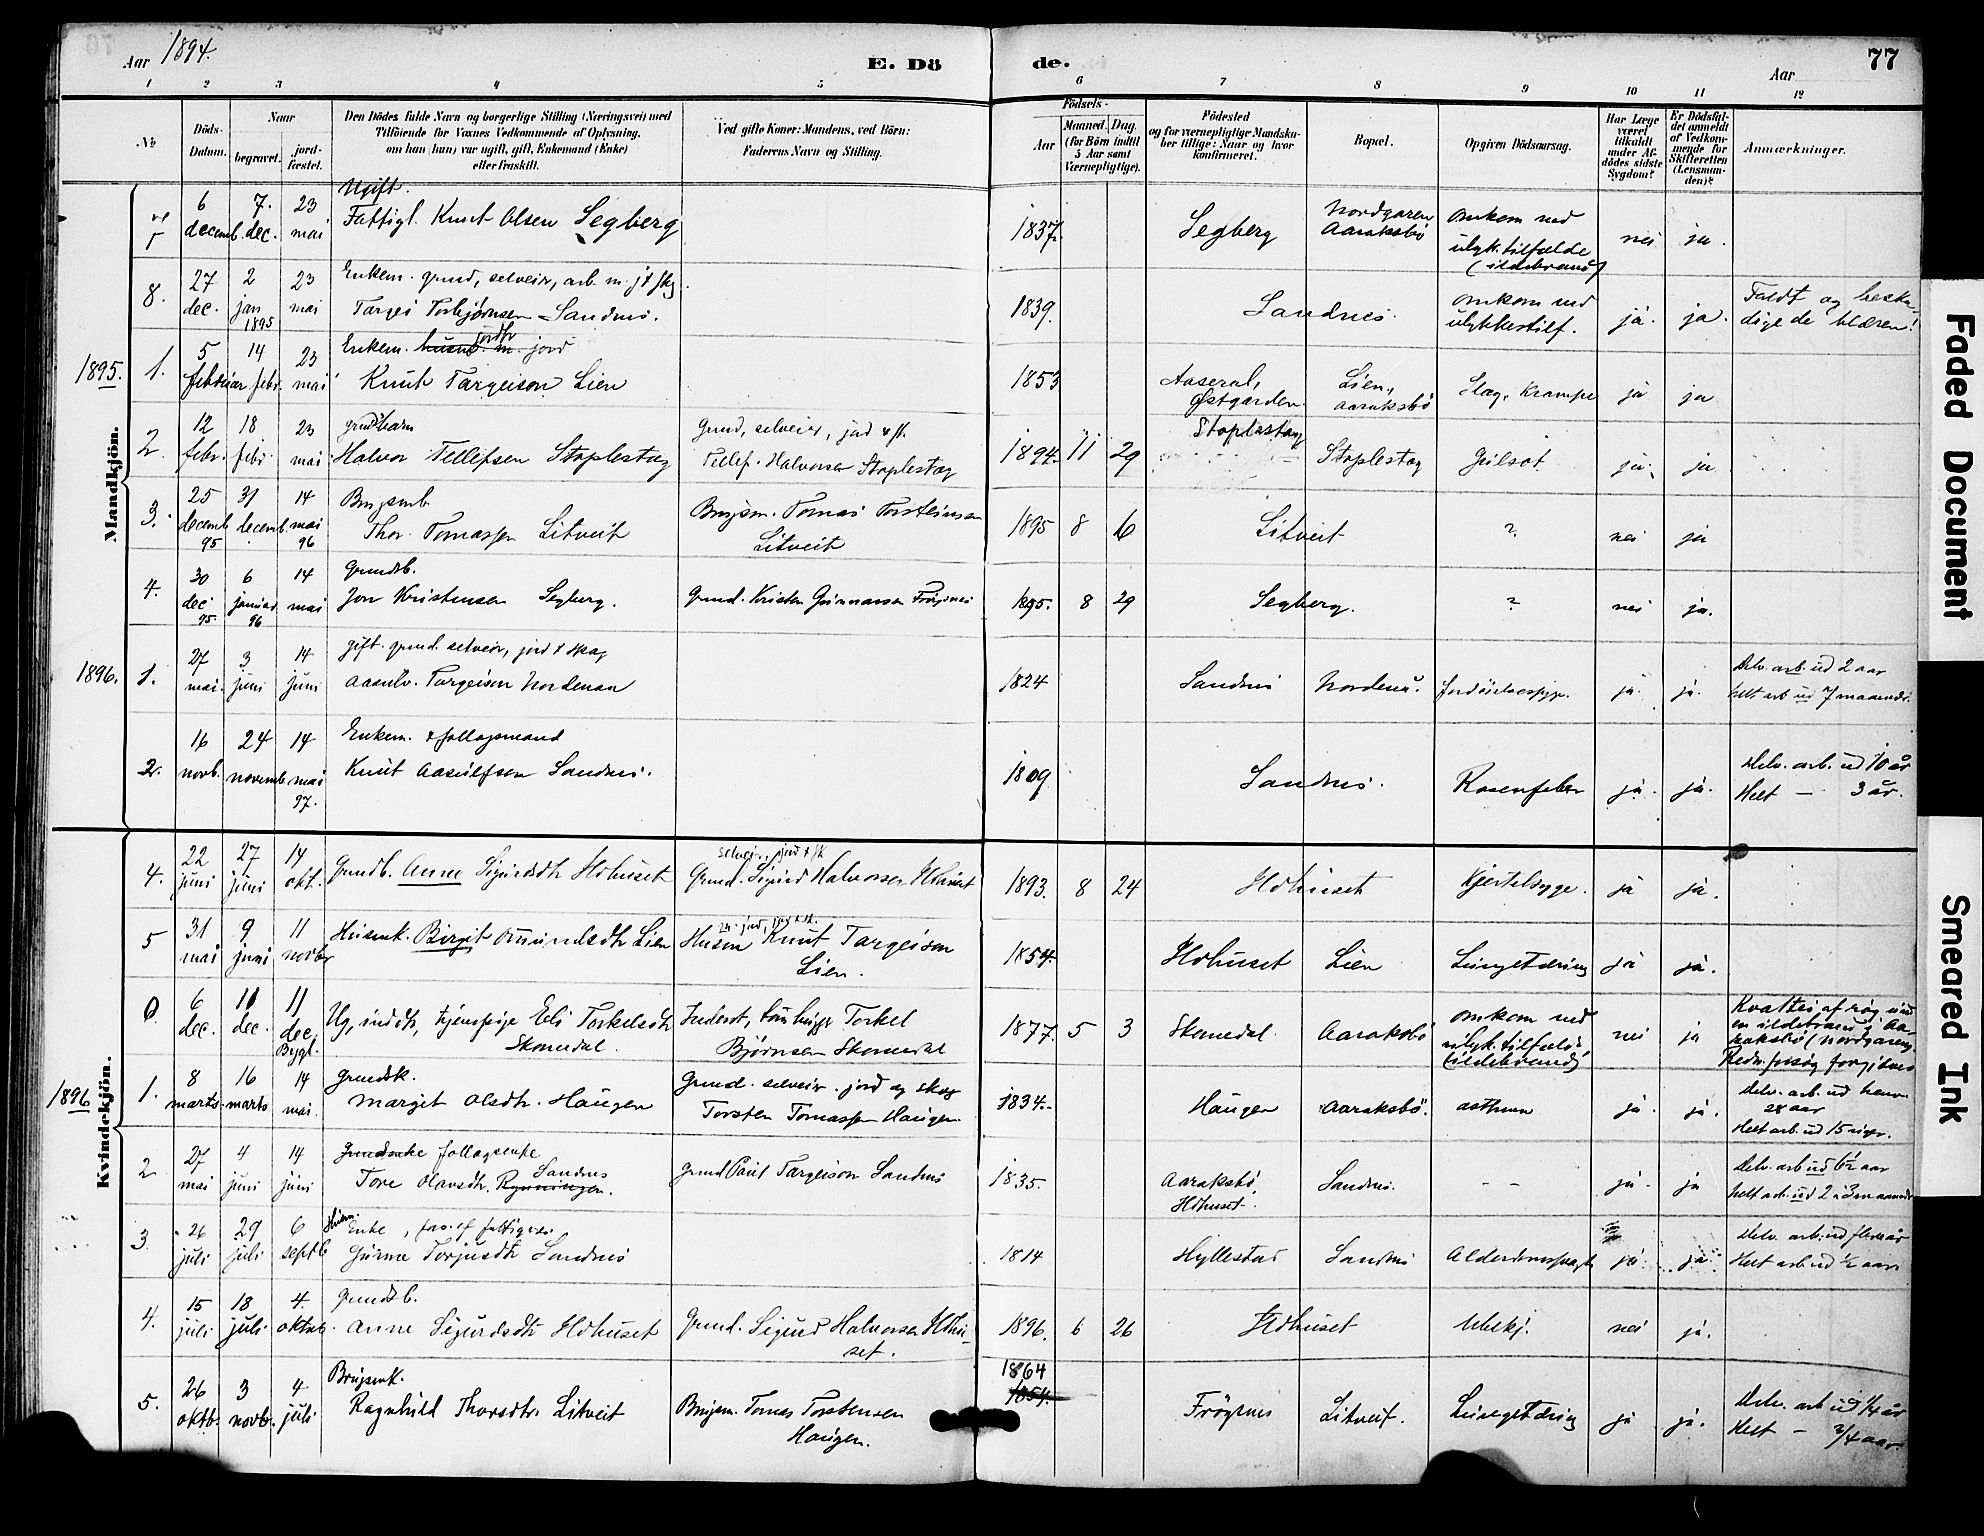 Aar 1894.
E. Dö
de.
Aar
77
1 2 3 4 5 6 7 8 9 10 11 12
No
Döds-Datum.
Naar
begravet.
jord-fæstet.
Den Dödes fulde Navn og borgerlige Stilling (Næringsvei) med
Tilföiende for Voxnes Vedkommende af Oplysning.
om han (hun) var ugift, gift, Enkemand (Enke)
eller fraskilt.
Ved gifte Koner: Mandens, ved Börn:
Faderens Navn og Stilling.
Födsels-
Aar
Maaned. Dag.
(for Börn indtil
5 Aar samt
Værnepligtige).
Födested
og for værnepligtige Mandska-
ber tillige: Naar og hvor
konfirmeret.
Bopæl.
Opgiven Dödsaarsag.
Har Læge
været
tilkaldt
under Af-
dödes sidste
Sygdom?
Er Dödsfal-
det anmeldt
af Vedkom-
mende for
Skifteretten
(Lensman-
den)?
Anmærkninger.
Mandkjön.
7 6 decemb. 7. dec. 23 mai Ugift. Fattigl. Knut Olsen Segberg 1837. Segberg Nordgaren Aaraksbö omkom ved ulyk.tilfælde (ildebrand) nei ja.
8. 27 dec. 2 jan 1895 23 mai Enkem. grund, selveier, arb. m. j & skg. Targei Torbjørnsen Sandnes. 1839. Sandnes. omkom ved ulykkestilf. ja. ja. Faldt og beska-digede blæren!
1895. 1. 5 februar 14 febr. 23 mai Enkem. jordbr m. jord Knut Targeison Lien 1853 Aaseral, Østgarden Lien, Aaraksbö Slag, Krampe ja ja
2. 12 febr. 18 febr 23 mai grundbarn Halvor Tellefsen Stoplestøg Grund, selveier, jord & sk. Tellef. Halvorsen Stoplestøg 1894 11 29 Stoplestøg Stoplestøg Gulsot ja. ja
3. 25 decemb 95 31 decemb. 14 mai 96 Brugsmb. Thor. Tomassen Litveit Brugsm. Tomas Torsteinsen Litveit 1895 8 6 Litveit ? nei ja
4. 30 dec 95 6 januar 96 14 mai Grundb. Jon Kristensen Segberg. Grund. Kristen Gunnarsen Frøysnes 1895. 8 29 Segberg. ? nei ja.
1896. 1. 27 mai. 3 juni 14 juni gift. grund. selveier, jord & skog Aasulv. Targeison Nordenaa 1824 Sandnes Nordenå. fordöielsessyge. ja. ja. Delv. arb. ud 2 aar helt arb ud 7 maaneder.
2. 16 novb. 24 novemb. 14 mai 97. Enkem. & follogsmand Knut Aasulfsen Sandnes. 1809. Sandnes. Rosenfeber ja. ja. Delv. arb. ud 10 år Helt — 3 år.
Kvindekjön.
4. 22 juni 27 juni 14 okt. Grundb. Anne Sigurdsdtr Hdhuset selvei., jord & sk Grund. Sigurd Halvorsen Hdhuset 1893. 8 24 Hdhuset Kjertelsyge. ja ja.
5 31 mai 9 juni 11 novbr Husmk. Birgit Omundsdtr Lien Husm Knut Targeison Lien. 1854. Hdhuset Lien Lungetæring ja ja.
6 dec. 11 dec. 11 dec. Bygl. Ug, inddtr, tjenstpige Eli Torkelsdtr Skomedal. Inderst, Torkel Bjørnsen Skomedal 1877. 5 3 Skomedal Aaraksbö omkom ved ulyk.tilfælde (ildebrand) nei ja Kvaltes af røg ved en ildebrand i Aa-raksbö (Nordgaren)
1896 1. 8 marts 16 marts 14 mai. Grundk. Margit Olsdtr. Haugen Grund. selveier. jord og skog Torsten Tomassen Haugen. 1834. Haugen Aaraksbö. asthma ja. ja. Delv. arb. ud henv. 28 aar Helt arb. ud 15 uger.
2 27 mai 4 juni 14 juni Grundenke follogsenke Tore Olavsdtr. Sandnes Rynningen. Grund Paul Targeison Sandnes 1835. Aaraksbö Hdhuset. Sandnes. - - ja. ja Delv. arb ud 6½ aar helt arb. ud 2 à 3 maaneder
3. 26 juli 29 juli 6 septb Husm. Enke, fors. af fattigv. Gunne Torjusdtr Sandnes 1814 Hyllestad Sandnes Alderdomssvagh ja. ja Delv. arb. ud flere år Helt arb ud ½ aar.
4. 15 juli 18 juli 4. oktob. Grundb. Anne Sigurdsdtr Hdhuset Grund. Sigurd Halvorsen Hdhu-set. 1896. 6 26 Hdhuset Ubekj. nei ja.
5. 26 oktb. 3 novb. 4 juli Brugsmk. Ragnhild Thorsdtr. Litveit Brugsm. Tomas Torstensen Haugen. 1864 1854. Frøysnes Litveit. Lungetæring ja ja. Delv. arb ud 1/4 år Helt — 3/4 aar.
Faded Document
Smeared Ink